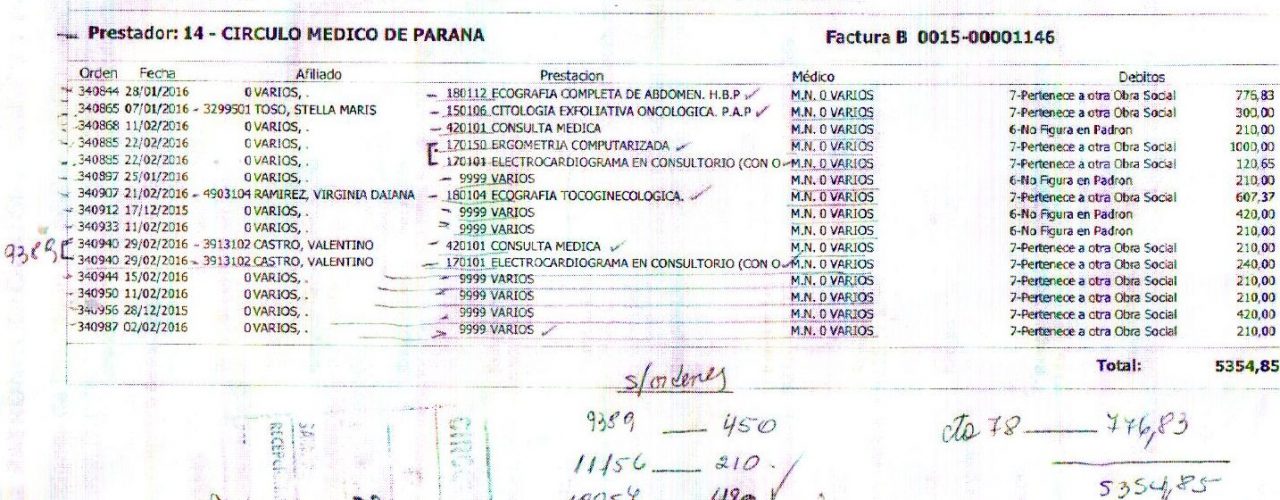 Prestador: 14 - CIRCULO MEDICO DE PARANA Factura B 0015-00001146
Orden Fecha Afiliado Prestacion Médico Debitos
340844 28/01/2016 0 VARIOS, . 180112 ECOGRAFIA COMPLETA DE ABDOMEN. H.B.P M.N. 0 VARIOS 7-Pertenece a otra Obra Social 776,83
340865 07/01/2016 - 3299501 TOSO, STELLA MARIS 150106 CITOLOGIA EXFOLIATIVA ONCOLOGICA. P.A.P M.N. 0 VARIOS 7-Pertenece a otra Obra Social 300,00
340868 11/02/2016 0 VARIOS, . 420101 CONSULTA MEDICA M.N. 0 VARIOS 6-No Figura en Padron 210,00
340885 22/02/2016 0 VARIOS, . 170150 ERGOMETRIA COMPUTARIZADA M.N. 0 VARIOS 7-Pertenece a otra Obra Social 1000,00
340885 22/02/2016 0 VARIOS, . 170101 ELECTROCARDIOGRAMA EN CONSULTORIO (CON O M.N. 0 VARIOS 7-Pertenece a otra Obra Social 120,65
340897 25/01/2016 0 VARIOS, . 9999 VARIOS M.N. 0 VARIOS 6-No Figura en Padron 210,00
340907 21/02/2016 - 4903104 RAMIREZ, VIRGINIA DAIANA 180104 ECOGRAFIA TOCOGINECOLOGICA. M.N. 0 VARIOS 7-Pertenece a otra Obra Social 607,37
340912 17/12/2015 0 VARIOS, . 9999 VARIOS M.N. 0 VARIOS 6-No Figura en Padron 420,00
340933 11/02/2016 0 VARIOS, . 9999 VARIOS M.N. 0 VARIOS 6-No Figura en Padron 210,00
9389 340940 29/02/2016 - 3913102 CASTRO, VALENTINO 420101 CONSULTA MEDICA M.N. 0 VARIOS 7-Pertenece a otra Obra Social 210,00
340940 29/02/2016 - 3913102 CASTRO, VALENTINO 170101 ELECTROCARDIOGRAMA EN CONSULTORIO (CON O M.N. 0 VARIOS 7-Pertenece a otra Obra Social 240,00
340944 15/02/2016 0 VARIOS, . 9999 VARIOS M.N. 0 VARIOS 7-Pertenece a otra Obra Social 210,00
340950 11/02/2016 0 VARIOS, . 9999 VARIOS M.N. 0 VARIOS 7-Pertenece a otra Obra Social 210,00
340956 28/12/2015 0 VARIOS, . 9999 VARIOS M.N. 0 VARIOS 7-Pertenece a otra Obra Social 420,00
340987 02/02/2016 0 VARIOS, . 9999 VARIOS M.N. 0 VARIOS 7-Pertenece a otra Obra Social 210,00
Total: 5354,85
s/ordenes
9389 — 450 cta 78 — 776,83
11156 — 210.
5354,85